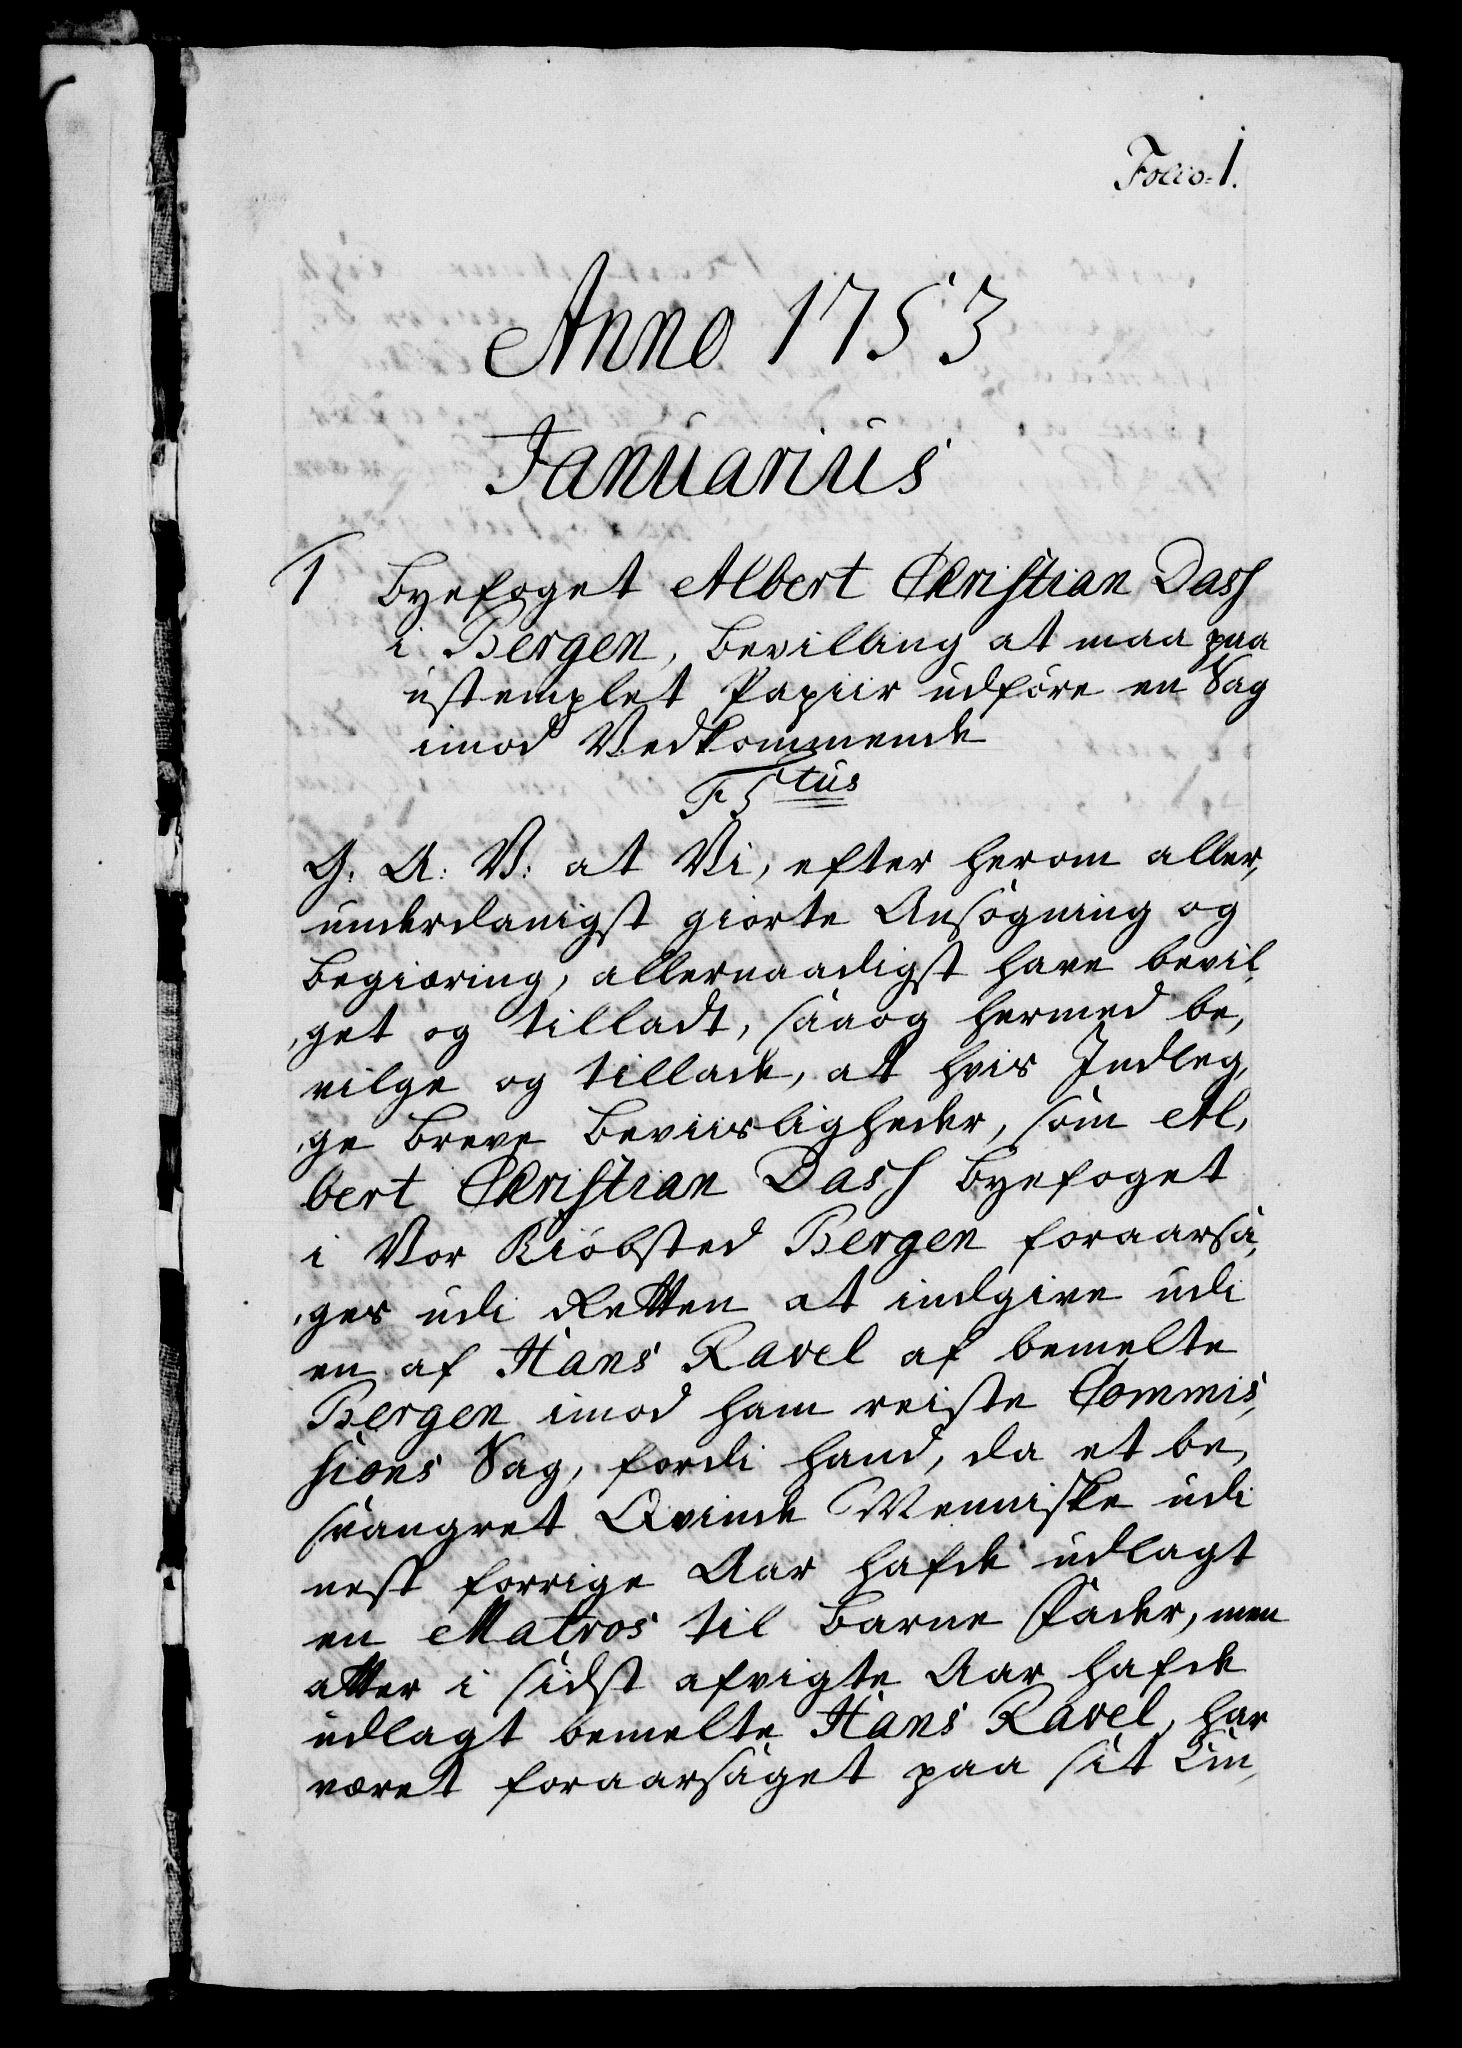 Folio: 1.
Anno 1753
Januarius
1 Byefoget Albert Christian Dass
i Bergen, Bevilling at maa paa
ustemplet Papiir udføre en Sag
imod Vedkommende
F 5 tus
G. A: V: at Vi, efter herom aller,
underdanigst giorte Ansøgning og
Begiæring, allernaadigst have bevil,
,get og tilladt, saa og hermed be,
vilge og tillade, at hvis Indleg,
,ge Breve Beviisligheder, som Al,
bert Christian Dass Byefoget
i Vor Kiøbsted Bergen foraarsa,
,ges udi Retten at indgive udi
en af Hans Ravel af bemelte
Bergen imod ham reiste Commis,
sions Sag, fordi hand, da et be,
svangret Qvinde Menniske udi
nest forrige Aar hafde udlagt
en Matros til Barne Fader, men
atter i sidst afvigte Aar hafde
udlagt bemelte Hans Ravel, har
været foraarsaget paa sit Em,